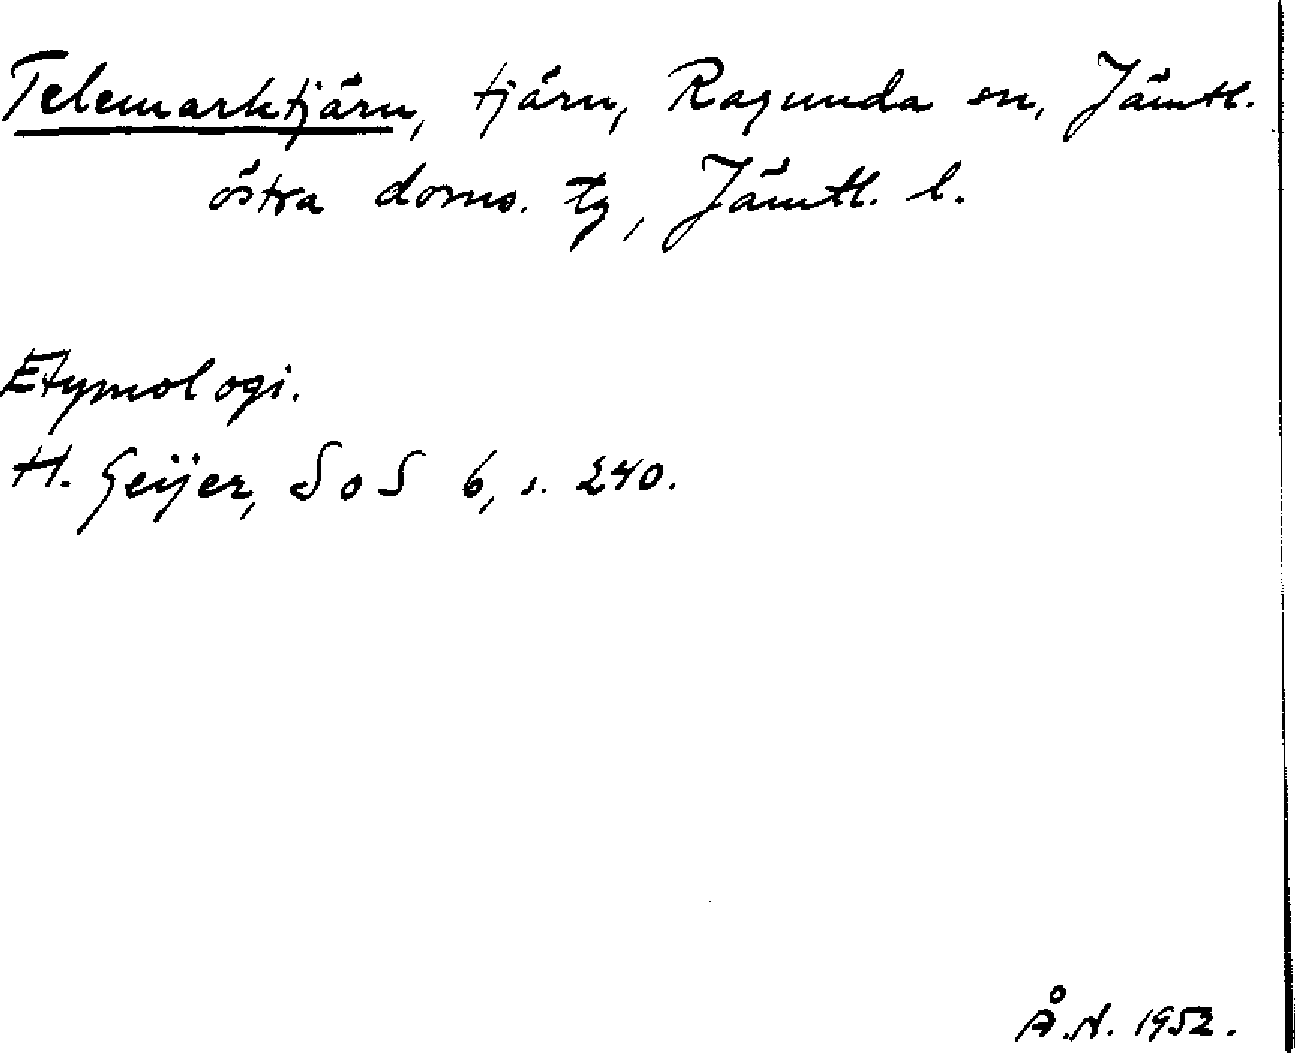 Telemarktjärn, tjärn, Ragunda sn, Jämtl.
östra doms. tg, Jämtl. l.
Etymologi.
H. Geijer, SoS 6, s. 240.
Å.N. 1952.